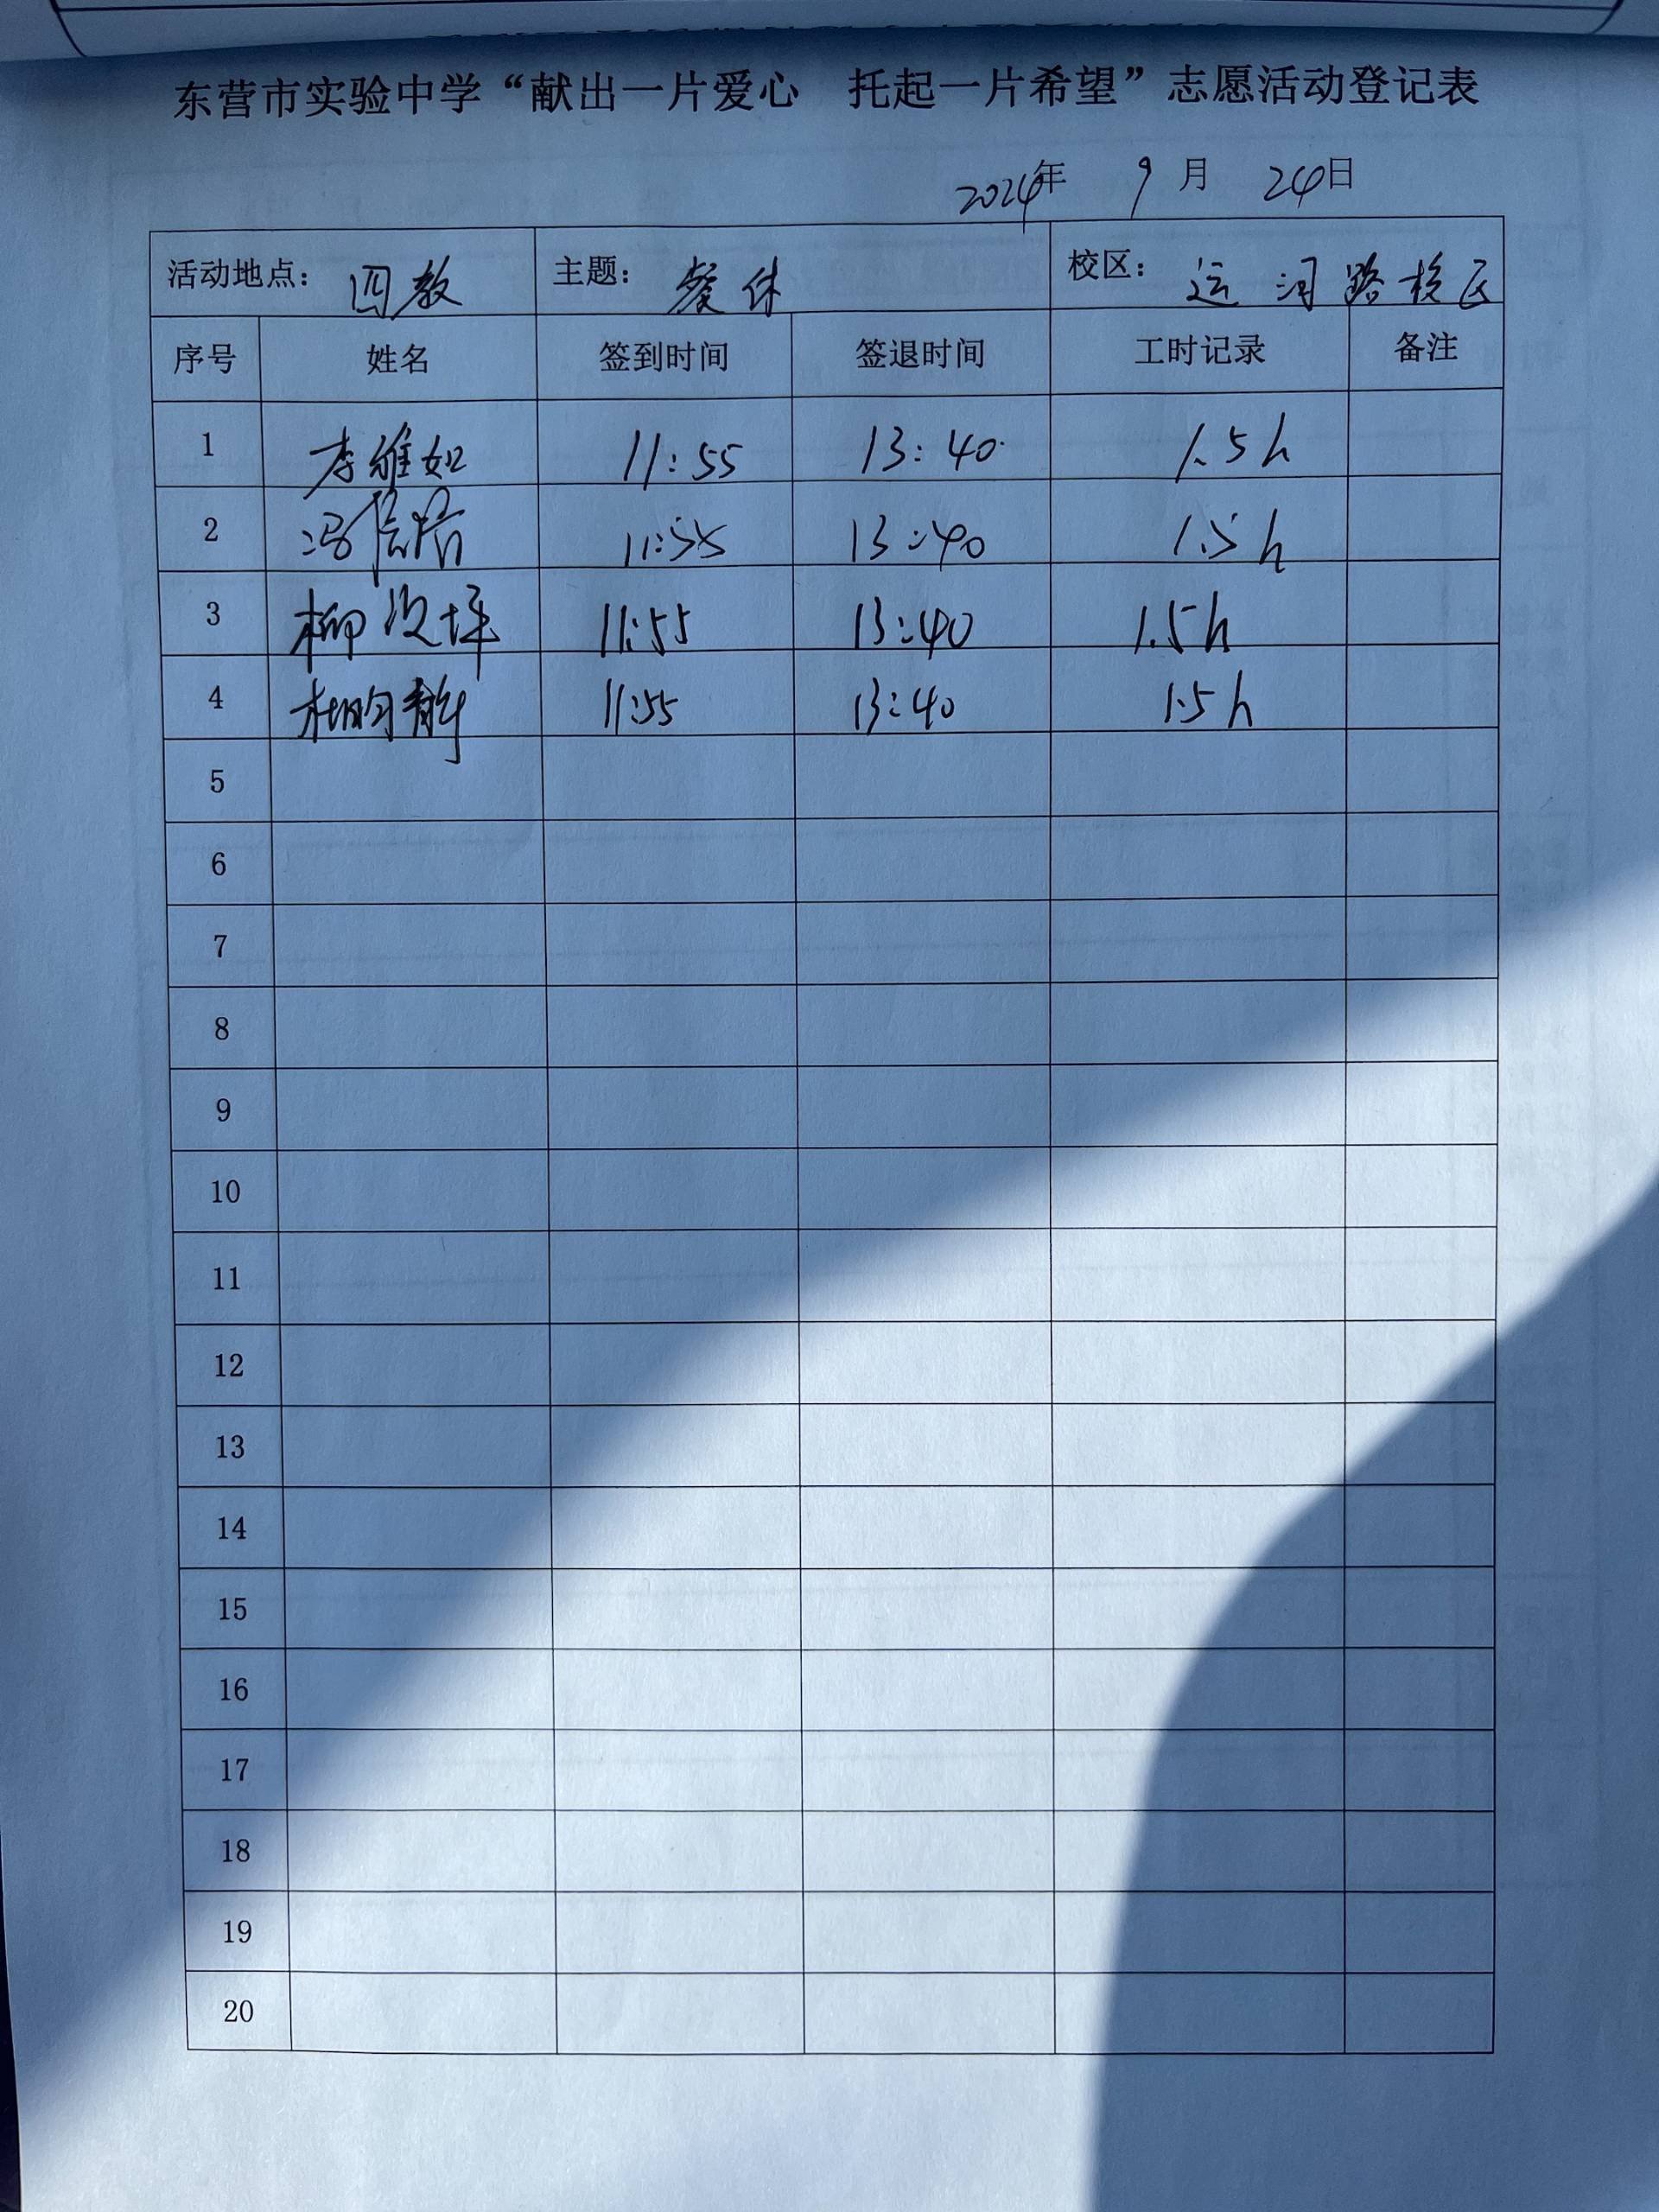 东营市实验中学“献出一片爱心 托起一片希望”志愿活动登记表
2024年 9月 24日
活动地点： 四教 主题： 餐休 校区： 运河路校区
序号 姓名 签到时间 签退时间 工时记录 备注
1 李维如 11:55 13:40 1.5h
2 冯 11:55 13:40 1.5h
3 柳汶坪 11:55 13:40 1.5h
4 11:55 13:40 1.5h
5
6
7
8
9
10
11
12
13
14
15
16
17
18
19
20